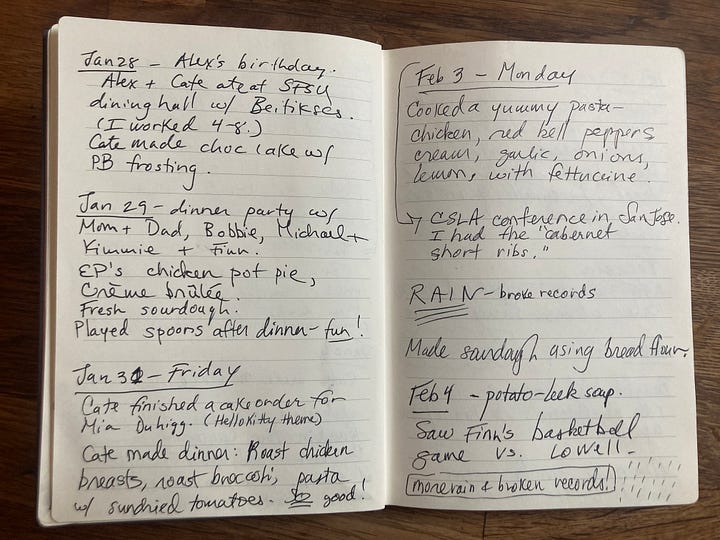 Jan 28 - Alex's birthday.
Alex + Cate ate at SFSU
dining hall w/ Beitikses.
(I worked 4-8.)
Cate made choc cake w/
PB frosting.
Jan 29 - dinner party w/
Mom + Dad, Bobbie, Michael +
Kimmie + Finn.
EP's chicken pot pie,
Crème brûlée.
Fresh sourdough.
Played spoons after dinner - fun!
Jan 31 - Friday
Cate finished a cake order for
Mia Duhigg. (Hello Kitty theme)
Cate made dinner: Roast chicken
breasts, roast broccoli, pasta
w/ sundried tomatoes. So good!
Feb 3 - Monday
Cooked a yummy pasta -
chicken, red bell peppers
cream, garlic, onions,
lemon, with fettuccine.
CSLA conference in San Jose.
I had the "cabernet
short ribs."
RAIN - broke records
Made using bread flour.
Feb 4 - potato-leek soup.
Saw Finn's basketball
game vs. Lowell -
more rain & broken records!